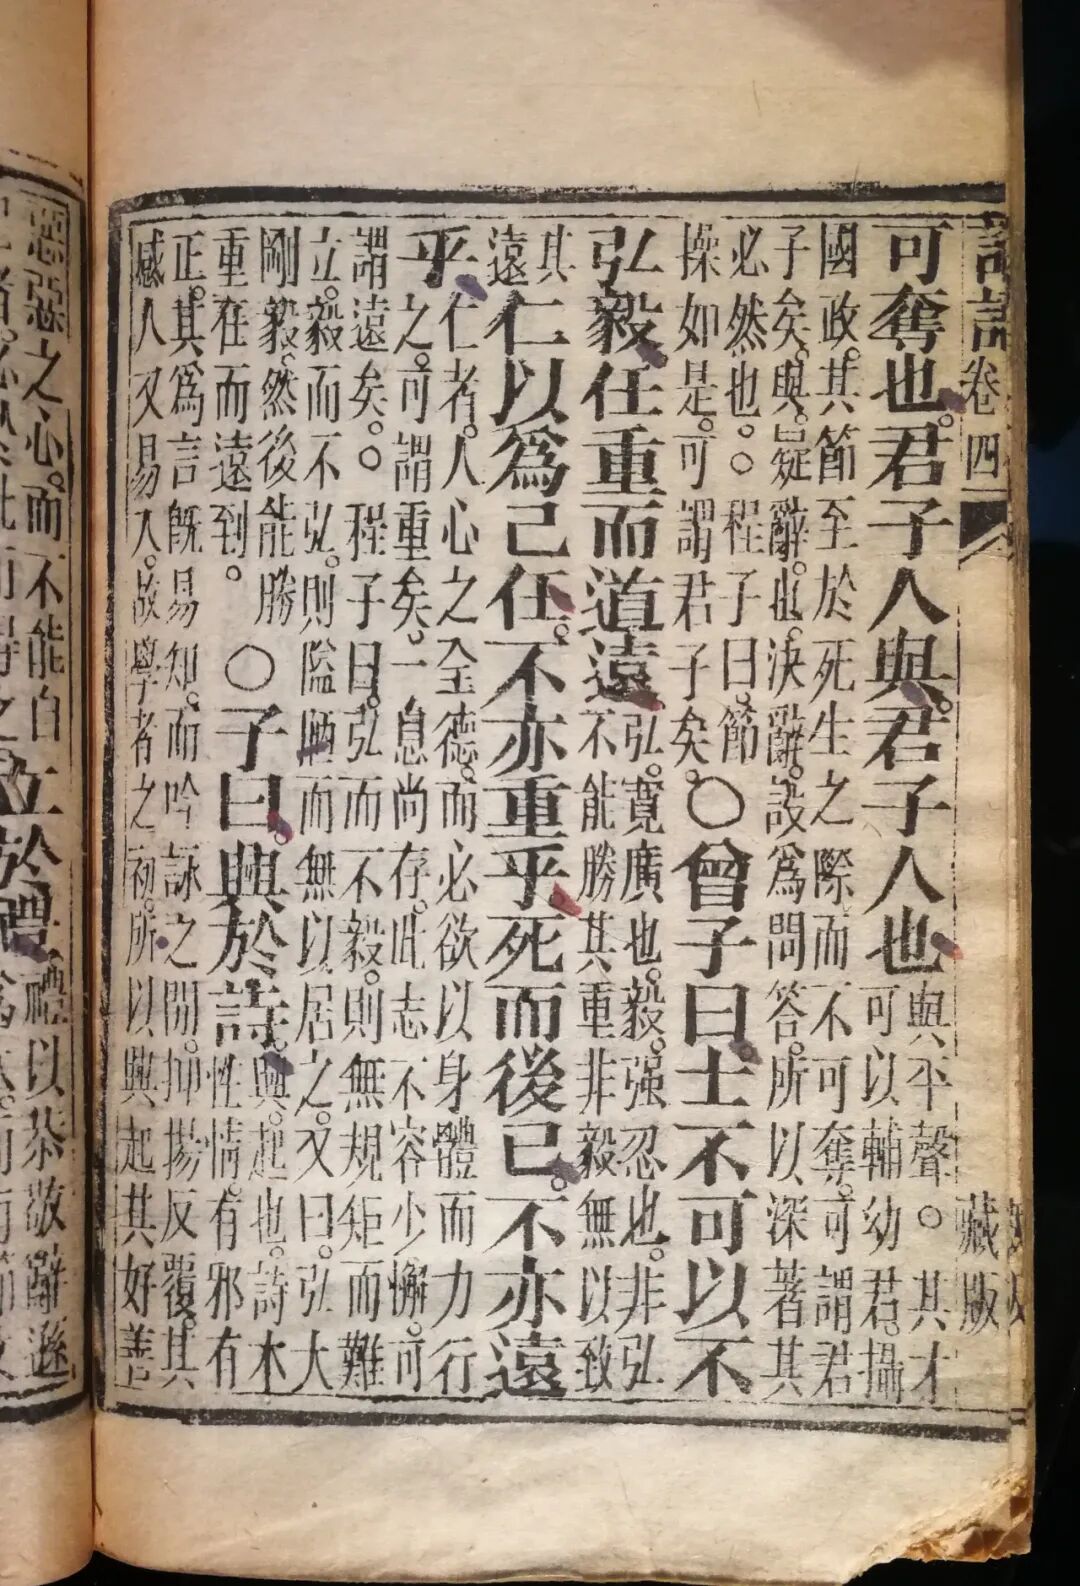 論語卷四 藏版
可奪也。君子人與。君子人也
與平聲。○其才
可以輔幼君。攝
國政。其節至於死生之際。而不可奪。可謂君
子矣。與。疑辭。也。決辭。設爲問答。所以深著其
必然也。○程子曰。節
操如是。可謂君子矣。
○曾子曰士不可以不
弘毅任重而道遠
弘。寬廣也。毅。强忍也。非弘
不能勝其重非毅無以致
其
遠
仁以爲己任。不亦重乎。死而後已。不亦遠
乎
仁者。人心之全德。而必欲以身體而力行
之。可謂重矣。一息尚存。此志不容少懈。可
謂遠矣。○程子曰。弘而不毅。則無規矩而難
立。毅而不弘。則隘陋而無以居之。又曰。弘大
剛毅。然後能勝
重在而遠到。
○子曰。興於詩。
興。起也。詩本
性情。有邪有
正。其爲言旣易知。而吟詠之間。抑揚反覆。其
感人又易入。故學者之初。所以興起其好善
惡惡之心。而不能自
立於禮。
禮以恭敬辭遜